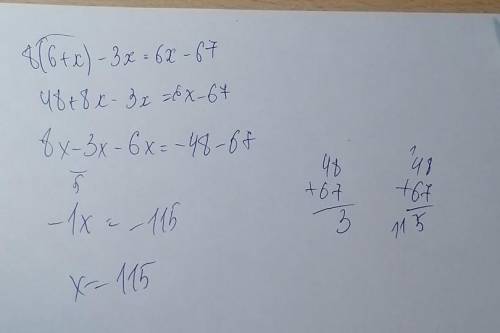 8(6+x) - 3x = 6x - 67
48 + 8x - 3x = 6x - 67
8x - 3x - 6x = -48 - 67
5
-1x = -115
x = 115
48
+67
3
1
48
+67
115